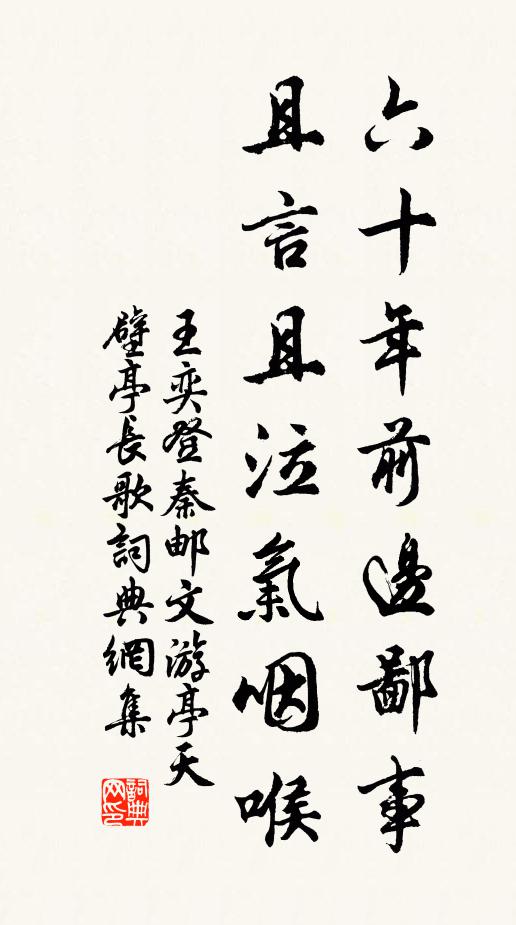 六十年前邊鄙事
且言且泣氣咽喉
王奕登秦邮文游亭天
壁亭長歌詞典網集
詞典
网印